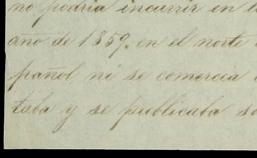 no podria incurrir en l
año de 1859. en el norte
pañol ni se comercia
taba y se publicaba so